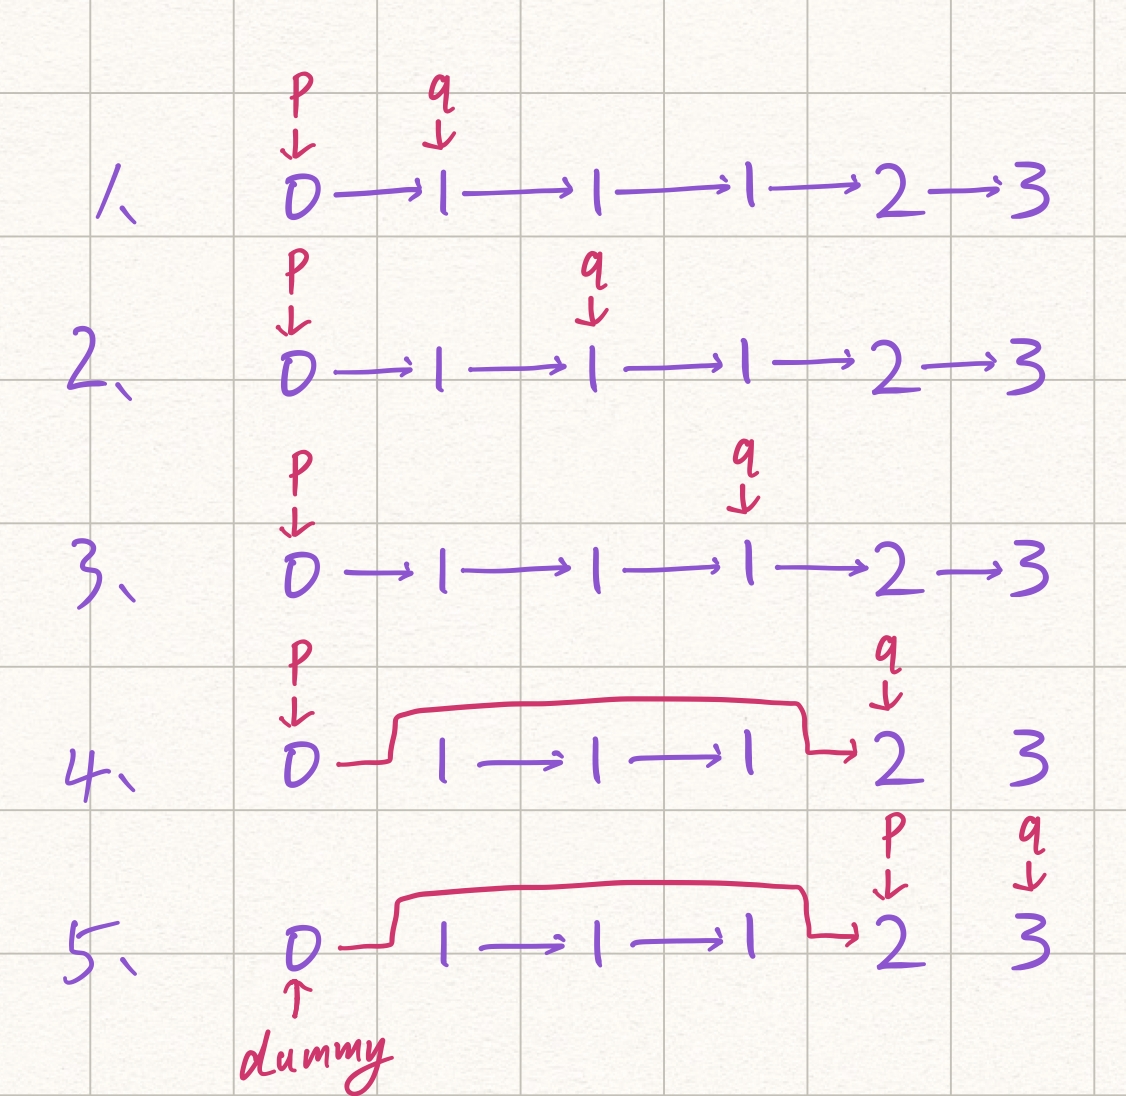 p q
1、 0 → 1 → 1 → 1 → 2 → 3
p q
2、 0 → 1 → 1 → 1 → 2 → 3
p q
3、 0 → 1 → 1 → 1 → 2 → 3
p q
4、 0 1 → 1 → 1 2 3
p q
5、 0 1 → 1 → 1 2 3
dummy